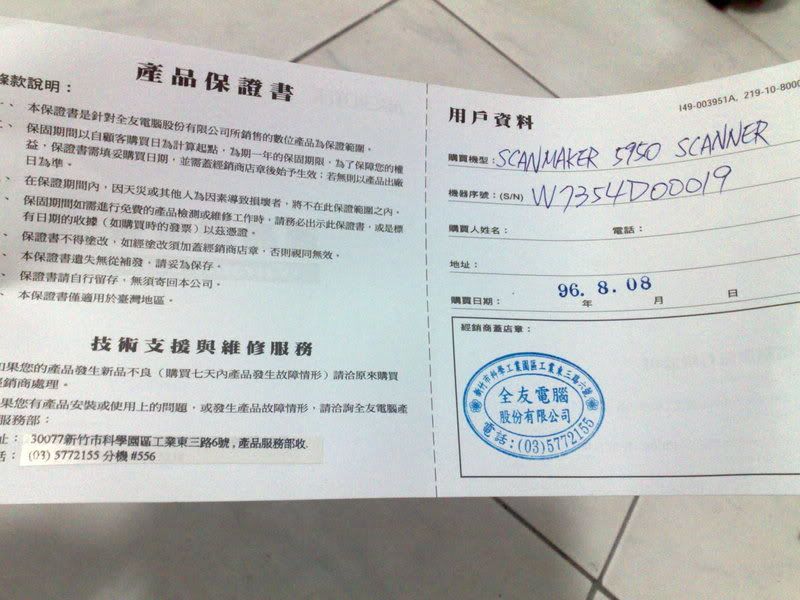 產品保證書
條款說明：
、 本保證書是針對全友電腦股份有限公司所銷售的數位產品為保證範圍。
、 保固期間以自顧客購買日為計算起點，為期一年的保固期限，為了保障您的權
益，保證書需填妥購買日期，並需蓋經銷商店章後始予生效；若無則以產品出廠
日為準。
、 在保證期間內，因天災或其他人為因素導致損壞者，將不在此保證範圍之內。
、 保固期間如需進行免費的產品檢測或維修工作時，請務必出示此保證書，或是標
有日期的收據（如購買時的發票）以茲憑證。
、 保證書不得塗改，如經塗改須加蓋經銷商店章，否則視同無效。
、 本保證書遺失無從補發，請妥為保存。
、 保證書請自行留存，無須寄回本公司。
、 本保證書僅適用於臺灣地區。
技術支援與維修服務
如果您的產品發生新品不良（購買七天內產品發生故障情形）請洽原來購買
經銷商處理。
果您有產品安裝或使用上的問題，或發生產品故障情形，請洽詢全友電腦產
服務部：
址： 30077新竹市科學園區工業東三路6號，產品服務部收.
話： (03) 5772155 分機 #556
I49-003951A, 219-10-8000
用戶資料
購買機型：SCANMAKER 5950 SCANNER
機器序號：(S/N) W7354D00019
購買人姓名： 電話：
地址：
購買日期： 96. 8. 08
年 月 日
經銷商蓋店章：
新竹市科學工業園區工業東三路六號
全友電腦
股份有限公司
電話：(03)5772155